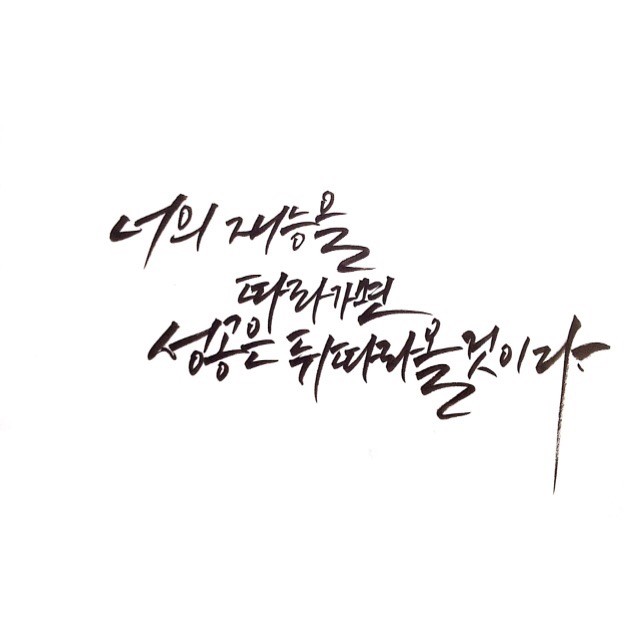 너의 재능을
따라가면
성공은 뒤따라올 것이다.